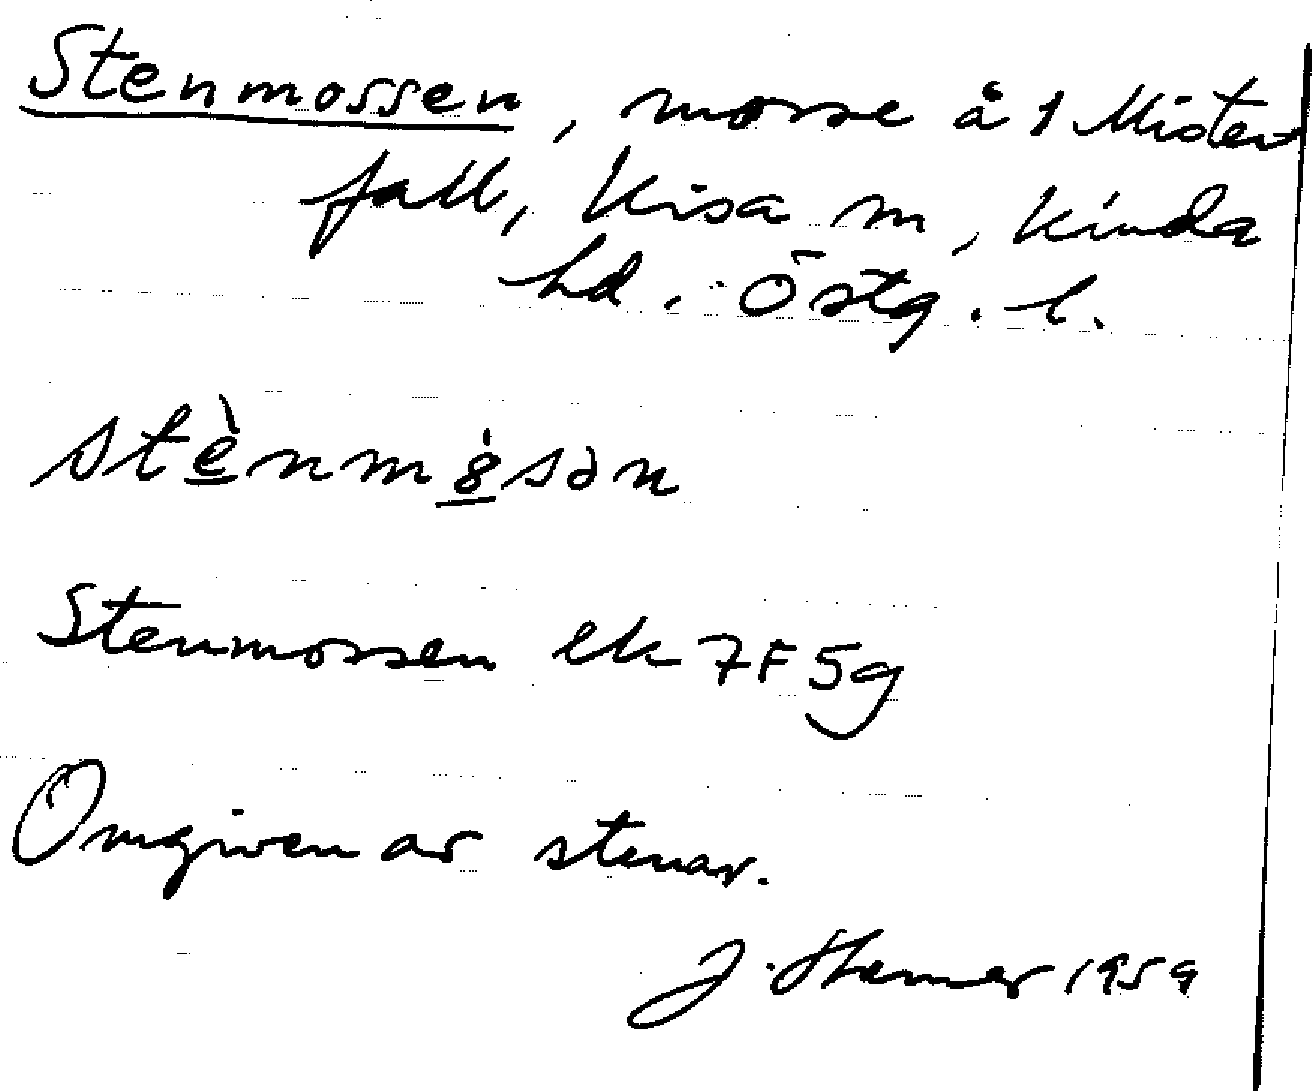 Stenmossen, mosse å 1 Mister
fall, Kisa sn, Kinda
hd. Östg. l.
stènmòsən
Stenmossen ek 7F 5g
Omgiven av stenar.
J. Stamer 1959